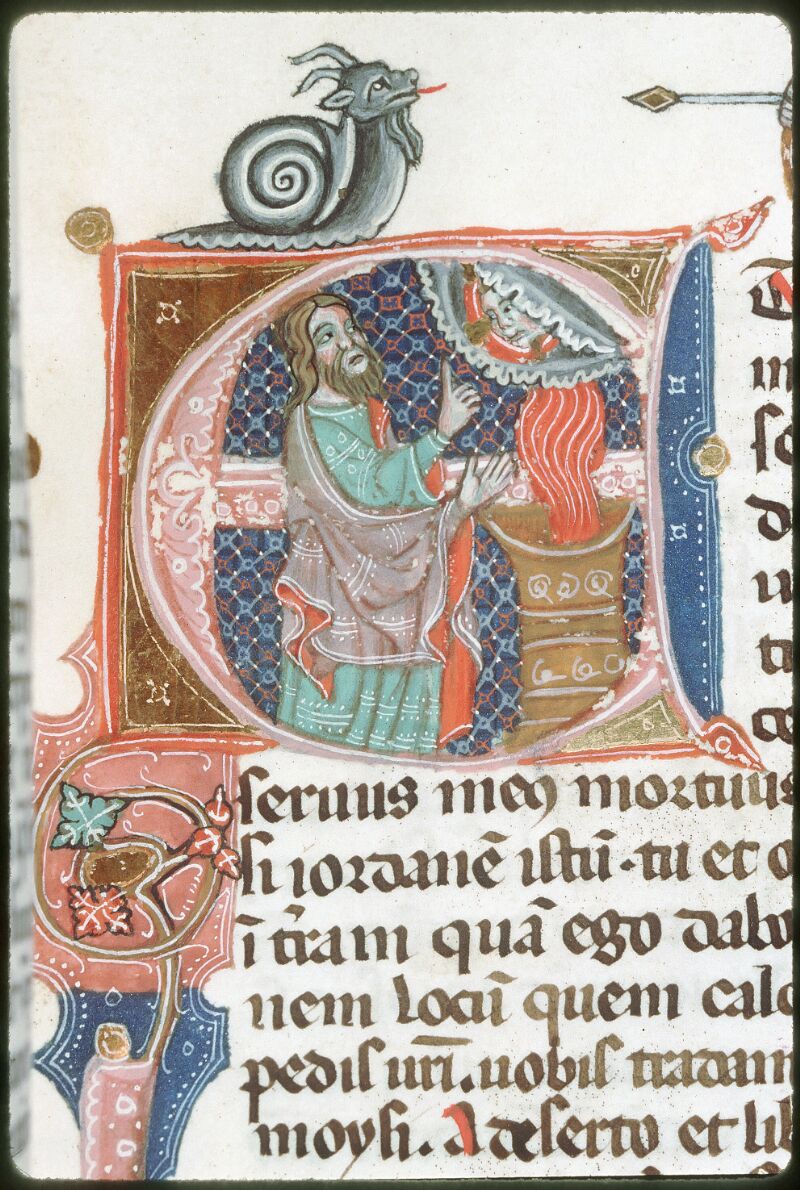 E
seruus meꝰ mortuus
si iordanē istū · tu et o
ī tr̄am quā ego dabo
nem locū quem calc
pedis ur̄i. uobis tradam
moysi. A deserto et lib